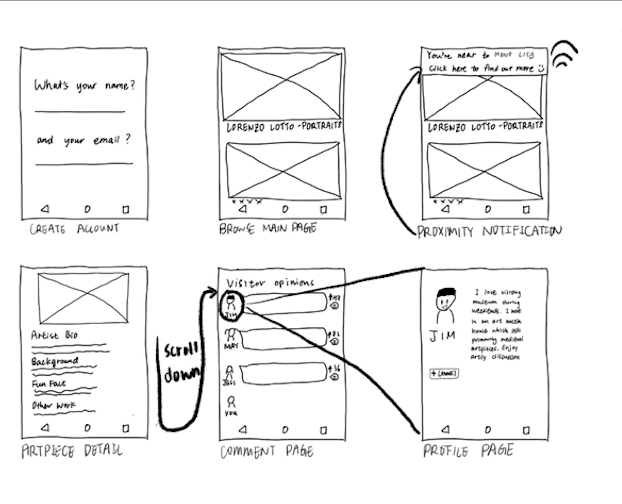 What's your name?
and your email?
CREATE ACCOUNT
LORENZO LOTTO -PORTRAITS
BROWSE MAIN PAGE
You're near to MONA LISA
Click here to find out more
LORENZO LOTTO -PORTRAITS
PROXIMITY NOTIFICATION
Artist Bio
Background
Fun Fact
Other Work
ARTPIECE DETAIL
Scroll
down
Visitor opinions
JIM
MAY
JESS
YOU
COMMENT PAGE
JIM
I love visiting
museum during
weekends. I work
in an art
house which sells
primarily medieval
artpieces. Enjoy
artsy discussion
PROFILE PAGE